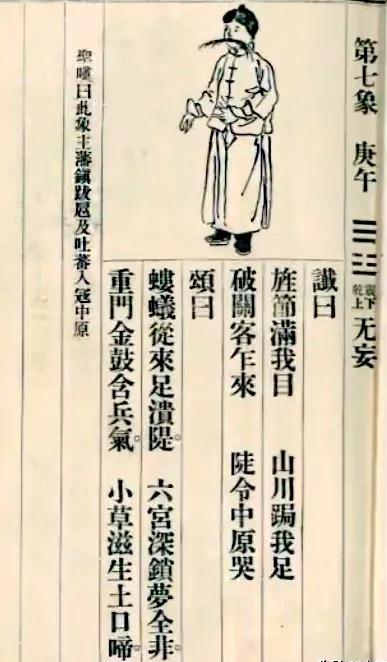 第七象 庚午 ☰☳ 震下乾上 无妄
讖曰
旌節滿我目 山川跼我足
破關客乍來 陡令中原哭
頌曰
螻蟻從來足潰隄。六宮深鎖夢全非。
重門金鼓含兵氣。小草滋生土口啼。
聖嘆曰此象主藩鎭跋扈及吐蕃入寇中原